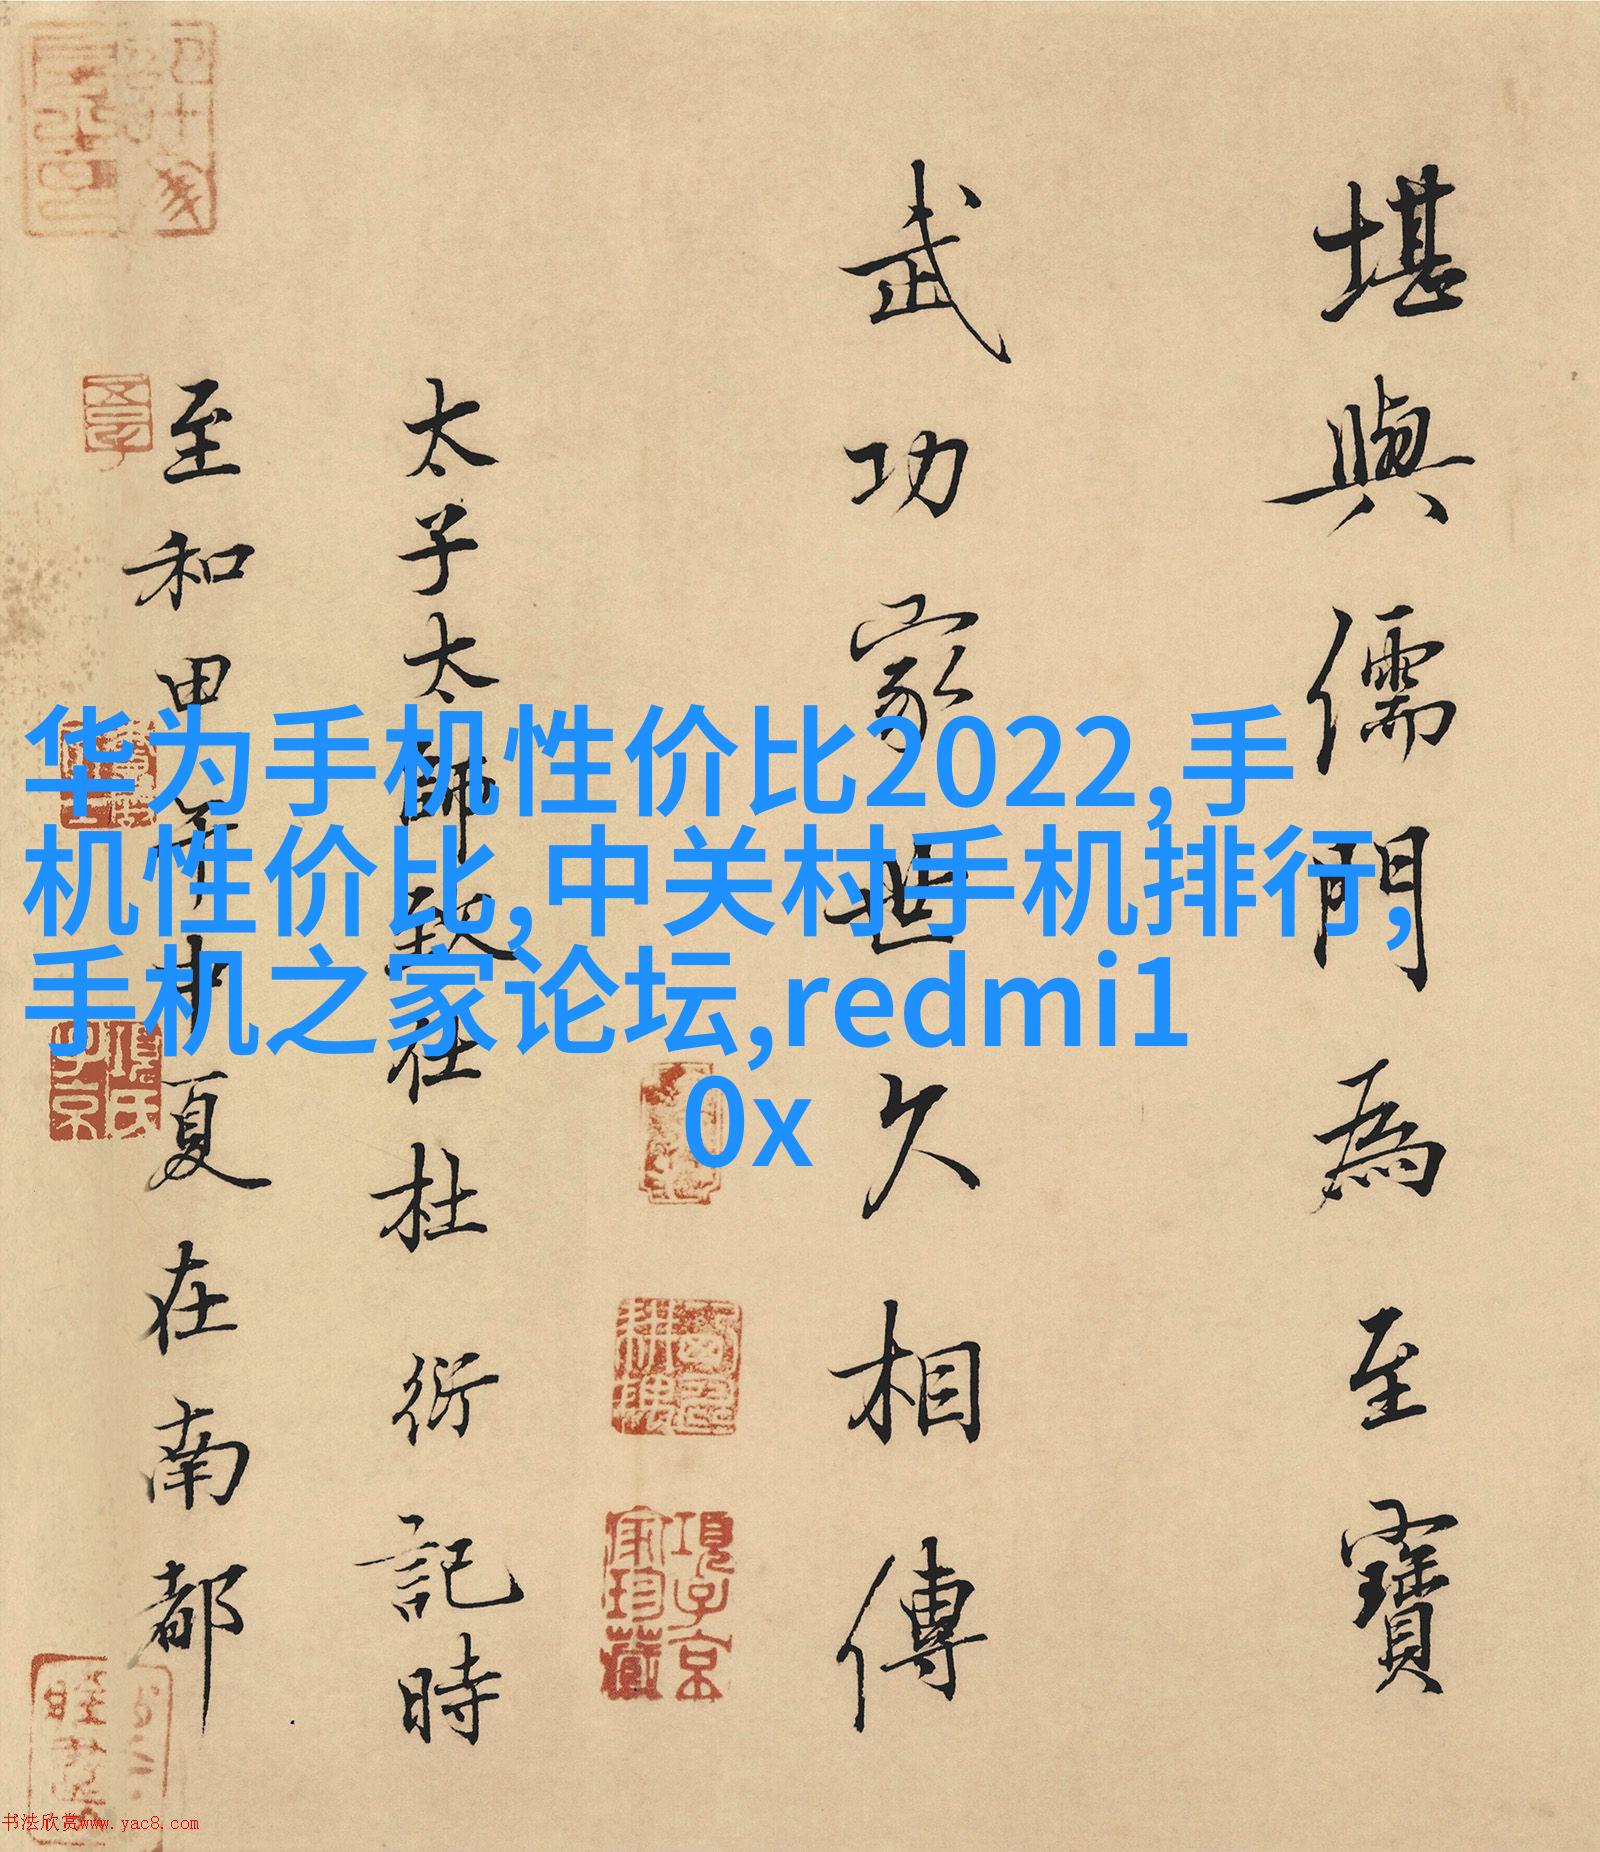 堪與儒門為至寶
武功家世久相傳
太子太師致仕杜衍記時
至和甲午中夏在南都
華为手机性价比2022,手
机性价比,中关村手机排行,
手机之家论坛,redmi1
0x
項子京
家珍藏
項氏
子京
书法欣赏www.yac8.com